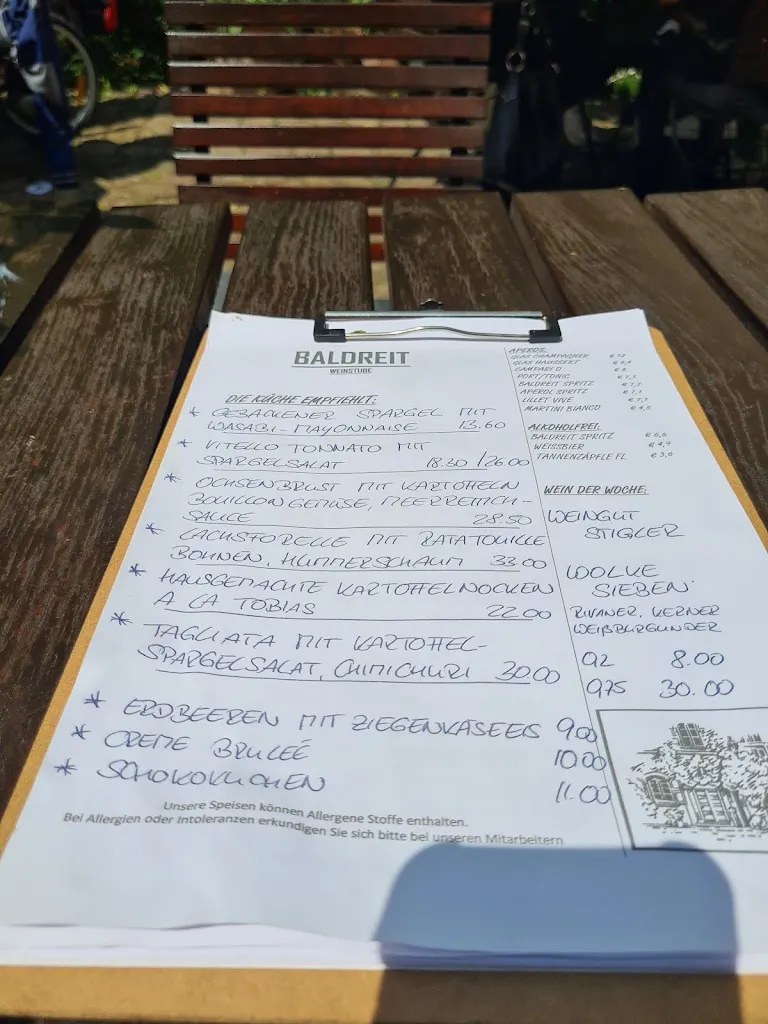 BALDREIT
WEINSTUBE
DIE KÜCHE EMPFIEHLT:
* GEBACKENER SPARGEL MIT
WASABI-MAYONNAISE 13.60
* VITELLO TONNATO MIT
SPARGELSALAT 18.30 /26.00
* OCHSENBRUST MIT KARTOFFELN
BOUILLONGEMÜSE, MEERRETTICH-
SAUCE 28.50
* LACHSFORELLE MIT RATATOUILLE
BOHNEN, HUMMERSCHAUM 33.00
* HAUSGEMACHTE KARTOFFELNOCKEN
A LA TOBIAS 22.00
* TAGLIATA MIT KARTOFFEL-
SPARGELSALAT, CHIMICHURI 30.00
* ERDBEEREN MIT ZIEGENKÄSEEIS 9.00
* CREME BRULEÉ 10.00
* SCHOKOKUCHEN 11.00
Unsere Speisen können Allergene Stoffe enthalten.
Bei Allergien oder Intoleranzen erkundigen Sie sich bitte bei unseren Mitarbeitern
APEROS:
GLAS CHAMPAGNER € 12
GLAS HAUSSEKT
CAMPARI O
PORT/TONIC € 7,1
BALDREIT SPRITZ € 7,1
APEROL SPRITZ € 7,1
LILLET VIVE € 7,1
MARTINI BIANCO € 4,5
ALKOHOLFREI:
BALDREIT SPRITZ € 6,6
WEISSBIER € 4,9
TANNENZÄPFLE FL € 3,6
WEIN DER WOCHE:
WEINGUT
STIGLER
WOLKE
SIEBEN
RIVANER, KERNER
WEIßBURGUNDER
0,2 8.00
0,75 30.00